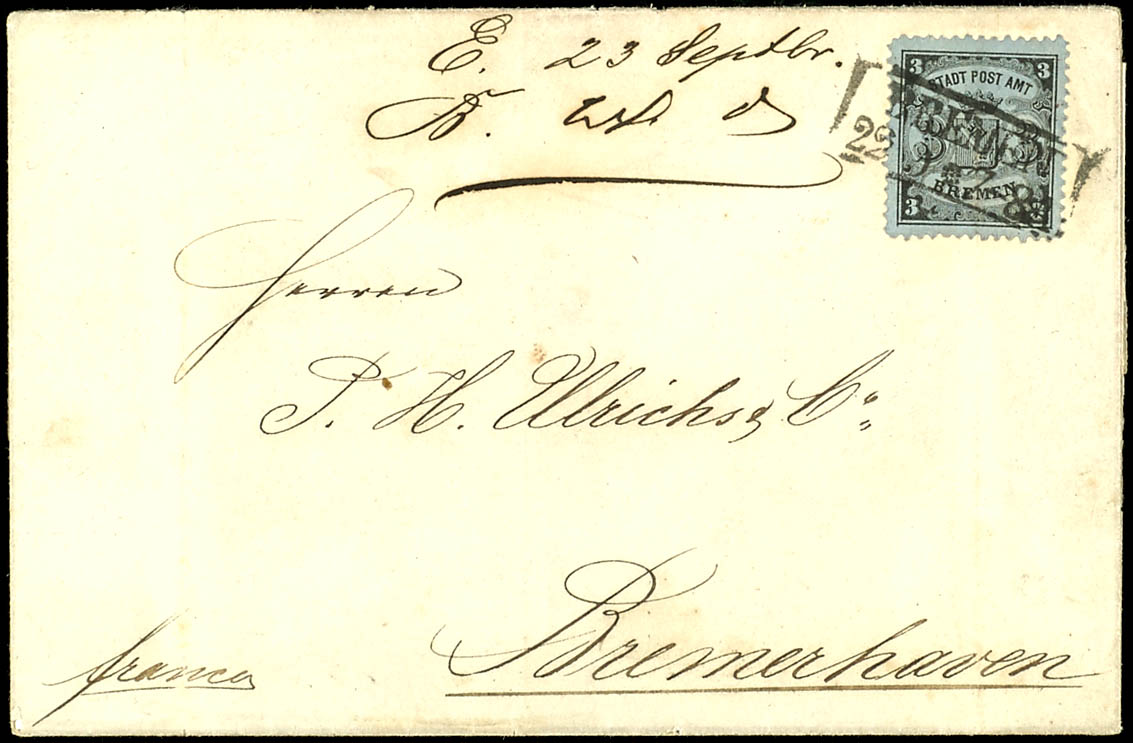 E. 23 Septbr.
B.
Herren
P. H. Ulrichs & Co
Bremerhaven
franco
3 3
STADT POST AMT
3 3
BREMEN
3
BREMEN
22 9